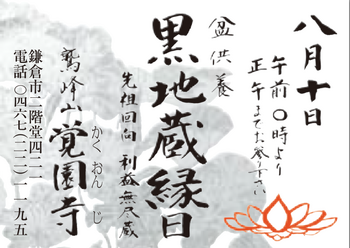 八月十日
午前〇時より
正午までお参り下さい
盆供養
黒地蔵縁日
先祖回向 利益無尽蔵
鷲峰山覚園寺
かくおんじ
鎌倉市二階堂四二一
電話〇四六七(二二)一一九五